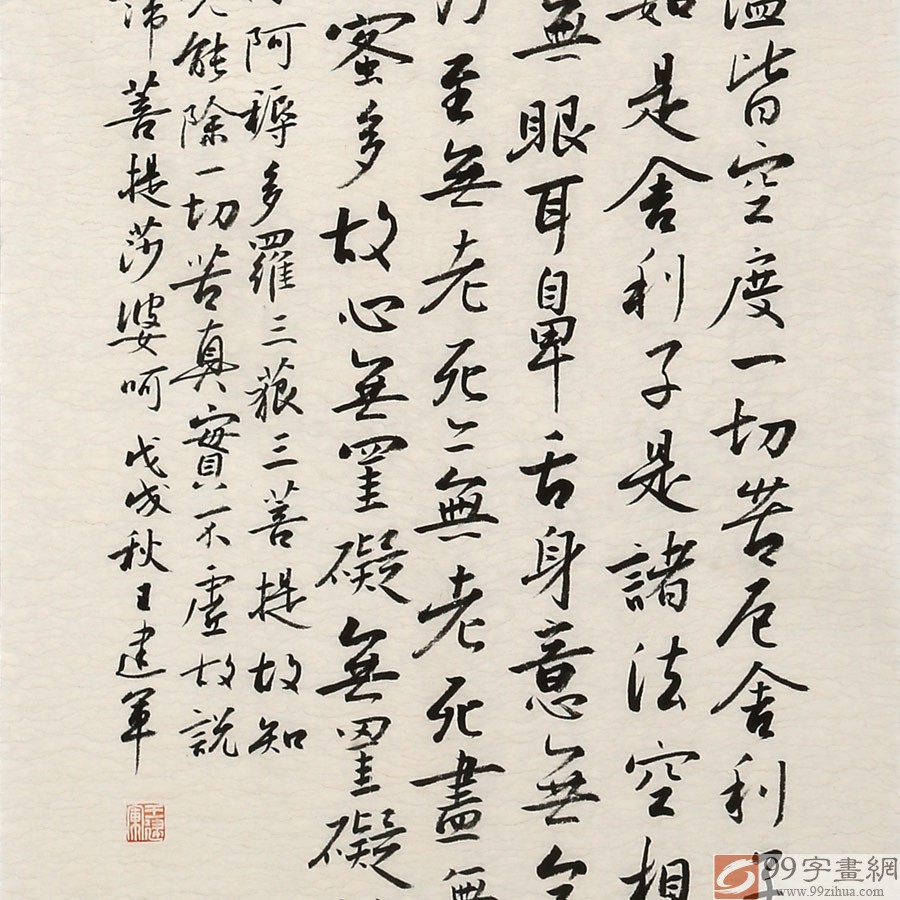 皆空度一切苦厄舍利
如是舍利子是諸法空相
無眼耳鼻舌身意無
乃至無老死亦無老死盡無
蜜多故心無罣礙無罣礙
阿耨多羅三藐三菩提故知
能除一切苦真實不虛故說
諦菩提莎婆呵戊戌秋日建軍
99字畫網
www.99zihua.com